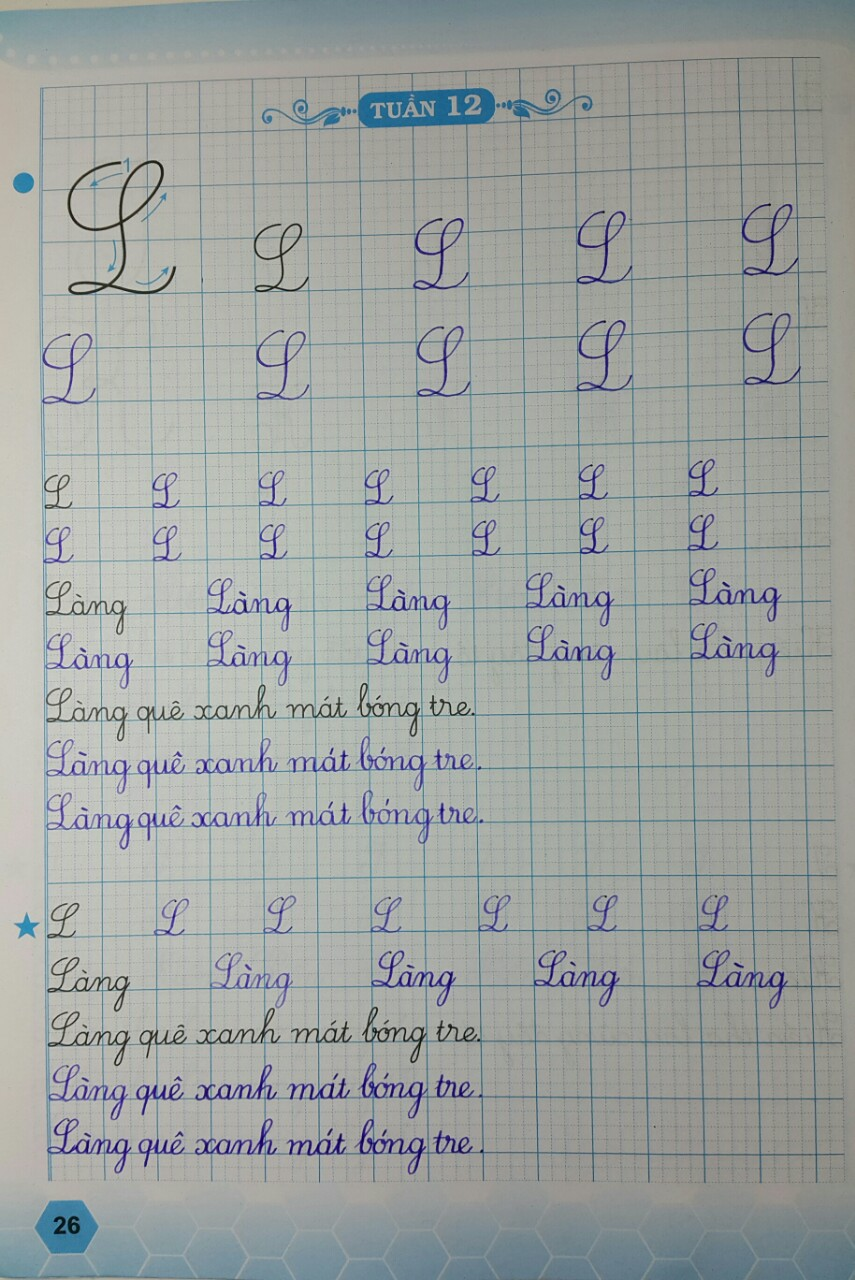 TUẦN 12
1
L L L L L
L L L L L
L L L L L L L
L L L L L L L
Làng Làng Làng Làng Làng
Làng Làng Làng Làng Làng
Làng quê xanh mát bóng tre.
Làng quê xanh mát bóng tre.
Làng quê xanh mát bóng tre.
L L L L L L L
Làng Làng Làng Làng Làng
Làng quê xanh mát bóng tre.
Làng quê xanh mát bóng tre.
Làng quê xanh mát bóng tre.
26